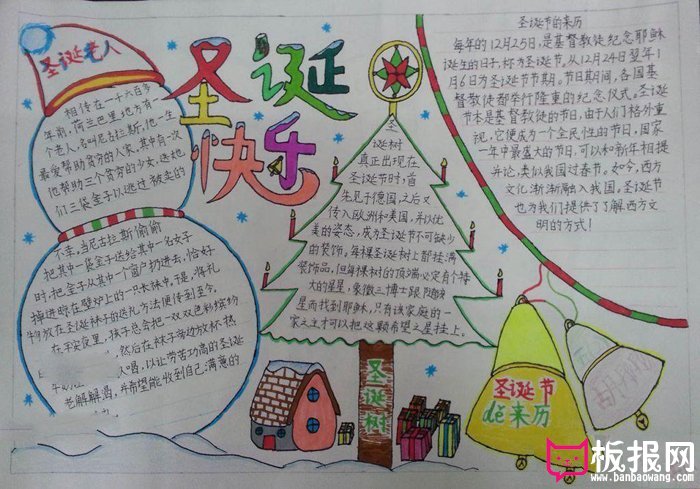 圣诞老人
相传在一千六百多
年前,荷兰巴里地方有一
个老人,名叫尼古拉斯,他一生
最爱帮助贫穷的人家。其中有一次
他帮助三个贫穷的少女,送她
们三袋金子以逃过被卖的
不幸。当尼古拉斯偷偷
把其中一袋金子送给其中一名女子
时,把金子从其中一个窗户扔进去,恰好
掉进晾在壁炉上的一只长袜中。于是,将礼
物放在圣诞袜子的送礼方法便传到至今。
在平安夜里,孩子总会把一双双色彩缤纷
然后在袜子旁边放杯热
人喝,以让劳苦功高的圣诞
老解解渴,并希望能收到自己满意的
圣诞
快乐
圣
诞树
真正出现在
圣诞节时,首
先见于德国,之后又
传入欧洲和美国,并以优
美的姿态,成为圣诞节不可缺少
的装饰。每棵圣诞树上都挂满
装饰品,但每棵树的顶端必定有个特
大的星星,象徵三博士跟随
星而找到耶稣,只有该家庭的一
家之主才可以把这颗希望之星挂上。
圣诞树
圣诞节的来历
每年的12月25日,是基督教徒纪念耶稣
诞生的日子,称为圣诞节。从12月24日翌年1
月6日为圣诞节节期。节日期间,各国基
督教徒都举行隆重的纪念仪式。圣诞
节本是基督教徒的节日,由于人们格外重
视,它便成为一个全民性的节日,国家
一年中最盛大的节日,可以和新年相提
并论,类似我国过春节。如今,西方
文化渐渐融入我国,圣诞节
也为我们提供了了解西方文
明的方式!
圣诞节
dè来历
板报网
www.banbaowang.com